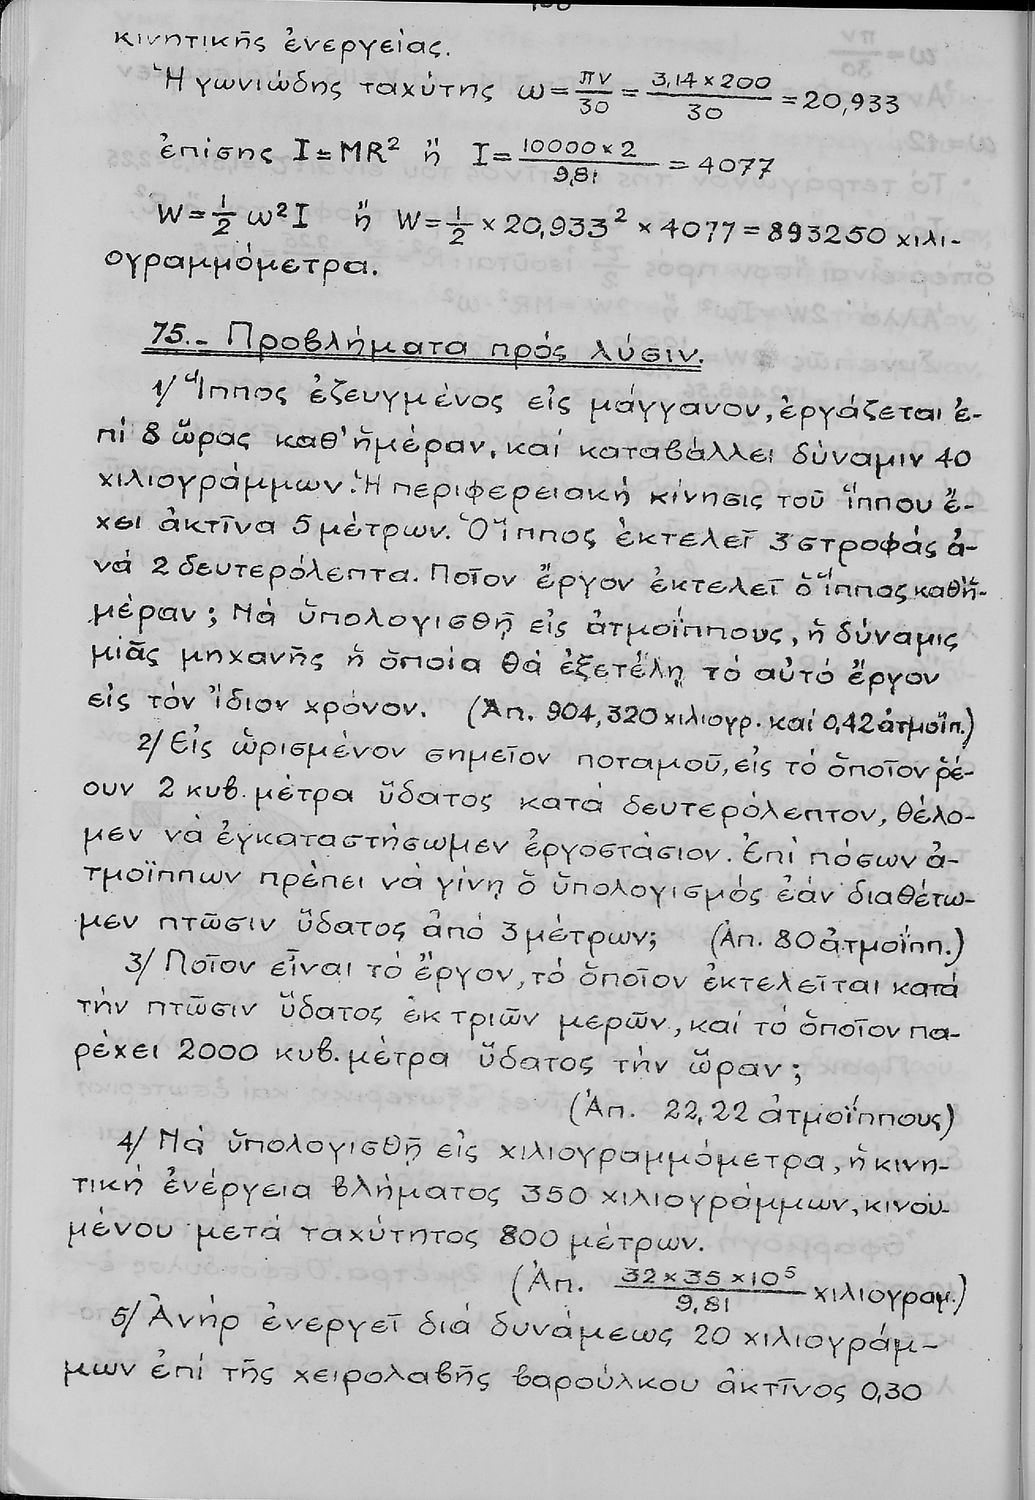 κινητικῆς ἐνεργείας.
Ἡ γωνιώδης ταχύτης ω = πν/30 = 3,14 × 200/30 = 20,933
ἐπίσης I = MR² ἤ I = 10000 × 2/9,81 = 4077
W = 1/2 ω² I ἤ W = 1/2 × 20,933² × 4077 = 893250 χιλι-
ογραμμόμετρα.
75.- Προβλήματα πρός λύσιν.
1/ Ἵππος ἐζευγμένος εἰς μάγγανον, ἐργάζεται ἐ-
πί 8 ὥρας καθ' ἡμέραν, καί καταβάλλει δύναμιν 40
χιλιογράμμων. Ἡ περιφερειακή κίνησις τοῦ ἵππου ἔ-
χει ἀκτῖνα 5 μέτρων. Ὁ ἵππος ἐκτελεῖ 3 στροφάς ἀ-
νά 2 δευτερόλεπτα. Ποῖον ἔργον ἐκτελεῖ ὁ ἵππος καθ' ἡ-
μέραν; Νά ὑπολογισθῇ εἰς ἀτμοΐππους, ἡ δύναμις
μιᾶς μηχανῆς ἡ ὁποία θά ἐξετέλῃ τό αὐτό ἔργον
εἰς τόν ἴδιον χρόνον. (Ἀπ. 904,320 χιλιογρ. καί 0,42 ἀτμοΐπ.)
2/ Εἰς ὡρισμένον σημεῖον ποταμοῦ, εἰς τό ὁποῖον ῥέ-
ουν 2 κυβ. μέτρα ὕδατος κατά δευτερόλεπτον, θέλο-
μεν νά ἐγκαταστήσωμεν ἐργοστάσιον. Ἐπί πόσων ἀ-
τμοΐππων πρέπει νά γίνῃ ὁ ὑπολογισμός ἐάν διαθέτω-
μεν πτῶσιν ὕδατος ἀπό 3 μέτρων; (Ἀπ. 80 ἀτμοΐπ.)
3/ Ποῖον εἶναι τό ἔργον, τό ὁποῖον ἐκτελεῖται κατά
τήν πτῶσιν ὕδατος ἐκ τριῶν μερῶν, καί τό ὁποῖον πα-
ρέχει 2000 κυβ. μέτρα ὕδατος τήν ὥραν;
(Ἀπ. 22,22 ἀτμοΐππους)
4/ Νά ὑπολογισθῇ εἰς χιλιογραμμόμετρα, ἡ κινη-
τική ἐνέργεια βλήματος 350 χιλιογράμμων, κινου-
μένου μετά ταχύτητος 800 μέτρων.
(Ἀπ. 32 × 35 × 10⁵/9,81 χιλιογραμ.)
5/ Ἀνήρ ἐνεργεῖ διά δυνάμεως 20 χιλιογράμ-
μων ἐπί τῆς χειρολαβῆς βαρούλκου ἀκτῖνος 0,30